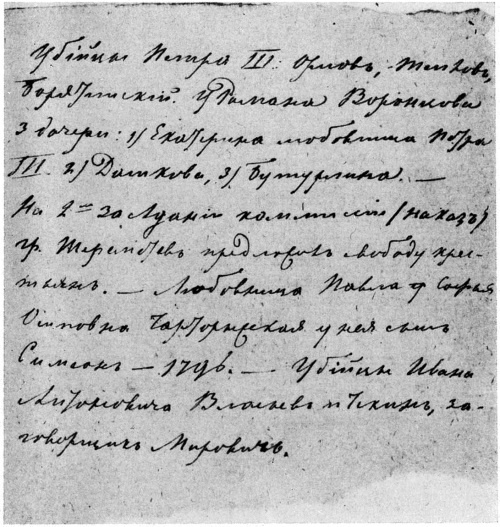 Убійцы Петра III: Орловъ, Тепловъ,
Борятинскій. У Романа Воронцова
3 дочери: 1) Екатерина любовница Петра
III. 2) Дашкова, 3) Бутурлина. —
На 2омъ засѣданіи коммиссіи (наказъ)
гр. Шереметевъ предложилъ свободу крес-
тьянъ. — Любовница Павла ф Софья
Осиповна Чарторыжская у нея сынъ
Симеонъ — 1796. — Убійцы Ивана
Антоновича Власьевъ и Чекинъ, за-
говорщикъ Мировичъ.